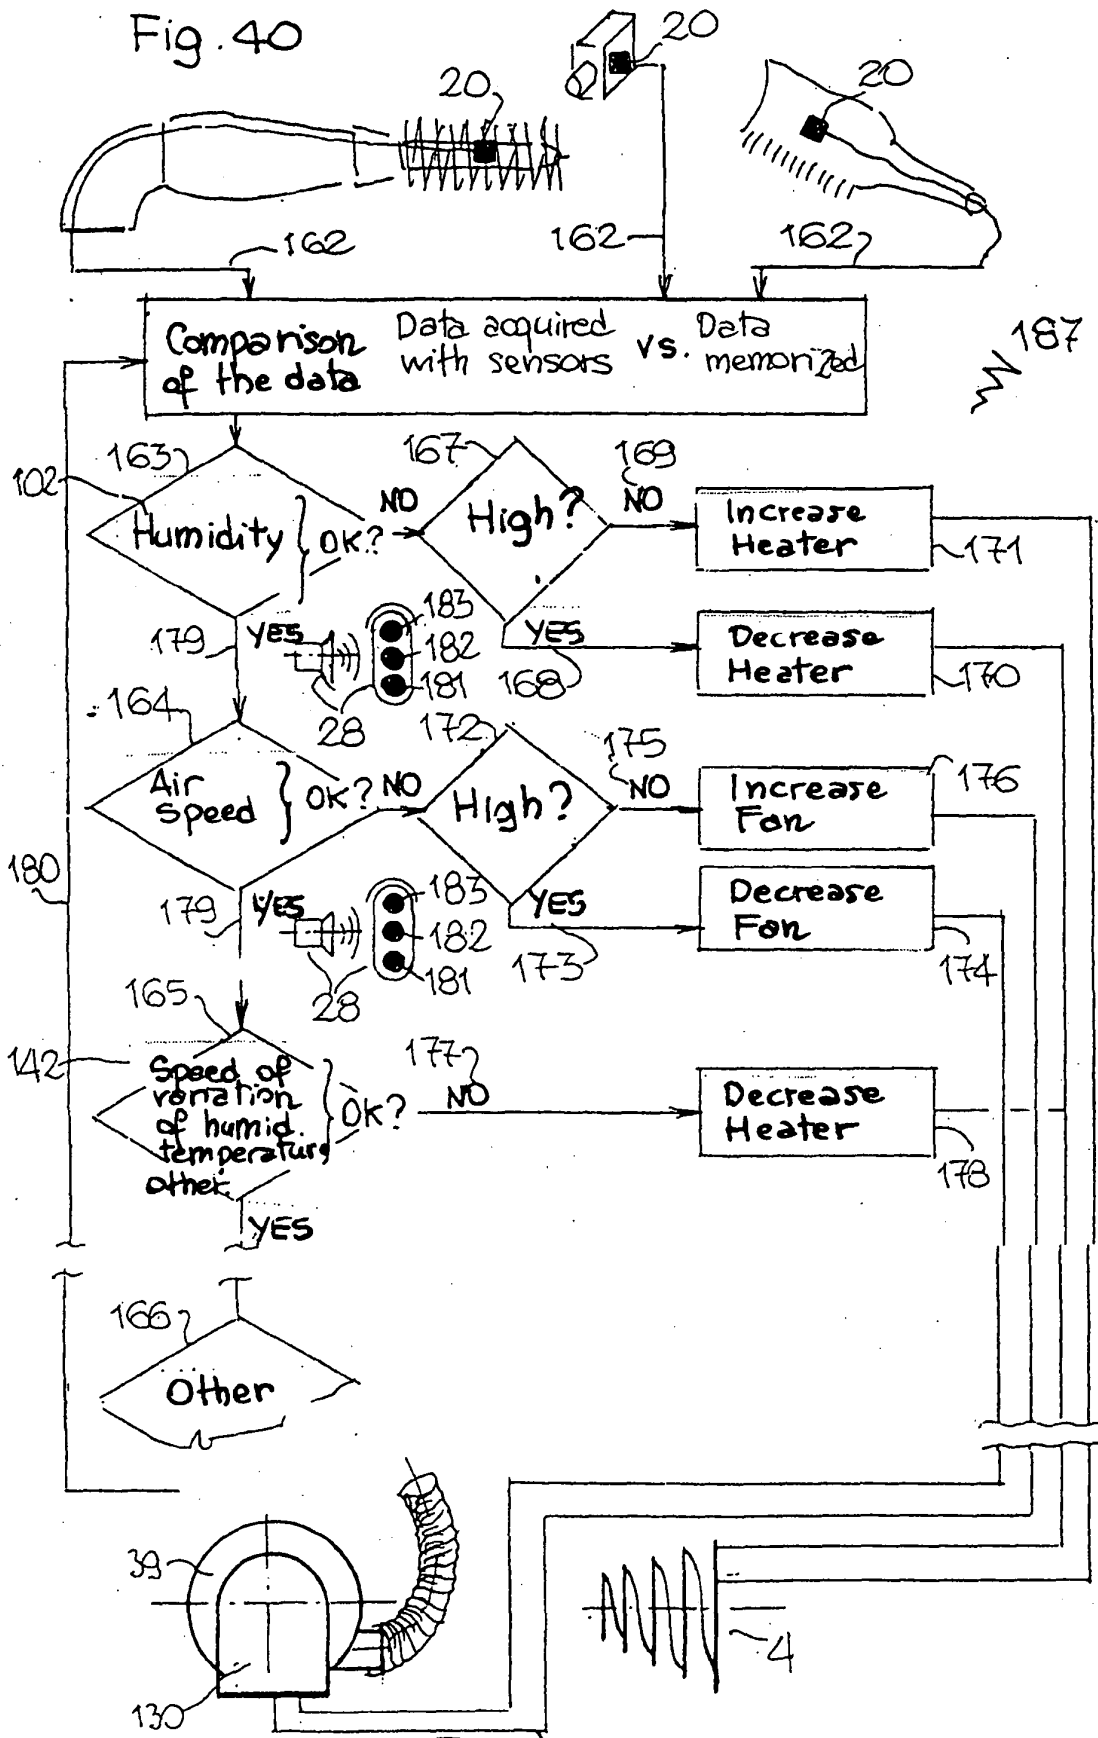 Fig. 40
20
20
20
162
162
162
187
Comparison of the data
Data acquired with sensors
vs.
Data memorized
163
102
Humidity
OK?
NO
167
High?
169
NO
Increase Heater
171
179
YES
183
182
181
28
YES
168
Decrease Heater
170
164
Air Speed
OK?
NO
172
High?
175
NO
Increase Fan
176
180
179
YES
183
182
181
28
YES
173
Decrease Fan
174
165
142
Speed of variation of humid. temperature other
OK?
177
NO
Decrease Heater
178
YES
166
Other
39
130
4